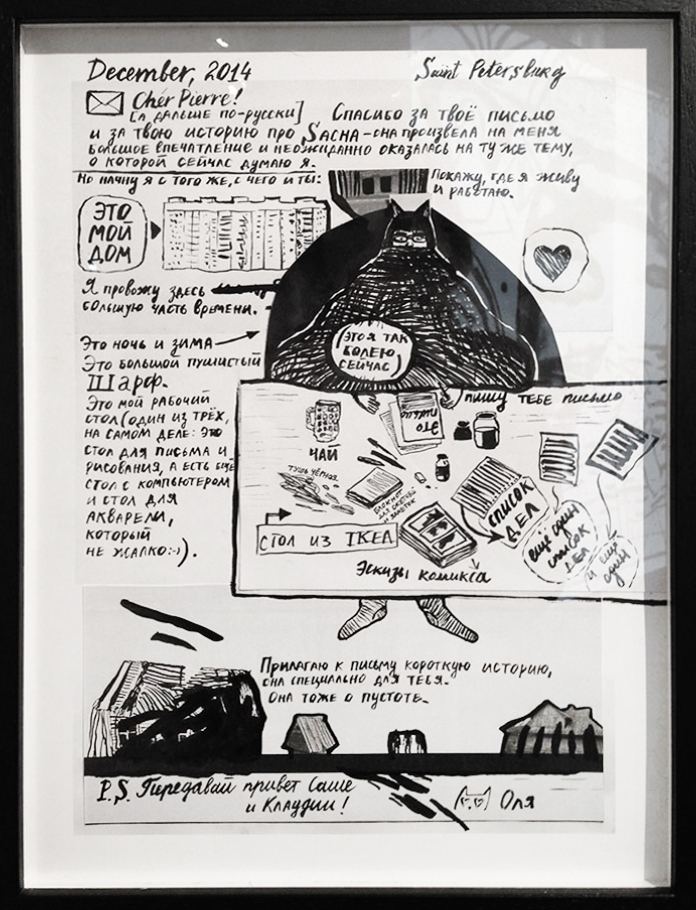 December, 2014
Saint Petersburg
Cher Pierre!
[а дальше по-русски] Спасибо за твоё письмо
и за твою историю про Sacha - она произвела на меня
большое впечатление и неожиданно оказалась на ту же тему,
о которой сейчас думаю я.
Но начну я с того же, с чего и ты:
Покажу, где я живу
и работаю.
ЭТО
МОЙ
ДОМ
Я провожу здесь
большую часть времени.
Это ночь и зима
Это большой пушистый
Шарф.
(это я так
болею
сейчас)
Это мой рабочий
стол (один из трёх,
на самом деле: это
стол для письма и
рисования, а есть ещё
стол с компьютером
и стол для
акварели,
который
не жалко:-)).
пишу тебе письмо
это
пишу
ЧАЙ
тушь чёрная
блокнот
для скетчей
и заметок
список
дел
ещё один
список
дел
и ещё
один
СТОЛ ИЗ IKEA
Эскизы комикса
Прилагаю к письму короткую историю,
она специально для тебя.
Она тоже о пустоте.
P.S. Передавай привет Саше
и Клаудии!
Оля